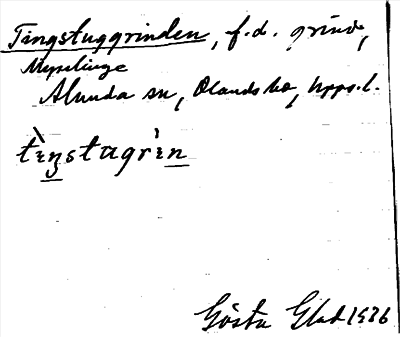 Tingstuggrinden, f.d. grind,
Mysslinge
Alunda sn, Olands hd, Upps. l.
tὶŋstugrὶn
Gösta Glad 1936